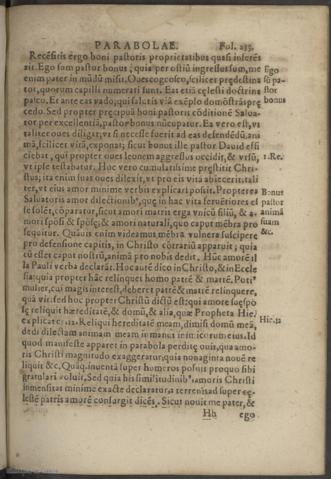 PARABOLAE. Fol. 235.
Recēsitis ergo boni pastoris proprietatibus quasi inferēs
ait. Ego sum pastor bonus, quia per ostiū ingressus sum, me
enim pater in mūdū misit. Oues cognosco, scilicet prędestina
tos, quorum capilli numerati sunt. Eas etiā cęlesti doctrina
pasco. Et ante eas vado, qui salutis viā exēplo domōstro prę
cedo. Sed propter pręcipuā boni pastoris cōditionē Salua-
tor per excellentiā, pastor bonus nūcupatur. Ea vero est, vt
taliter oues diligat, vt si necesse fuerit ad eas defendēdū, ani
mā, scilicet vitā, exponat; sicut bonus ille pastor Dauid effi
ciebat, qui propter oues leonem aggressus occidit, & vrsū,
vt ipse testabatur. Hoc vero cumulatissime pręstitit Chri-
stus, ita enim suas oues dilexit, vt pro eis vitā abiecerit, tali
ter, vt eius amor minime verbis explicari possit. Propterea
Saluatoris amor dilectionib', que in hac vita feruētiores es
se solēt, cōparatur, sicut amori matris erga vnicū filiū, & a-
moris spōsi & spōsę, & amori naturali, quo caput mēbra pro
sequitur. Quāuis enim videamus mēbra vulnera suscipere
pro defensione capitis, in Christo cōtrariū apparuit, quia
cū esset caput nostrū, animā pro nobis dedit. Hūc amorē il
la Pauli verba declarāt. Hoc autē dico in Christo, & in Eccle
sia; quia propter hāc relinquet homo patrē & matrē.
mulier, cui magis interest, deberet patrē & matrē relinquere,
amore suę spō
sę reliquit hæreditatē, & domū, & alia, quæ Propheta Hie
explicat. Reliqui hereditatē meam, dimisi domū meā,
dedi dilectam animam meam in manus inimicorum eius. Id
quod manifeste apparet in parabola perditę ouis, qua amo-
ris Christi magnitudo exaggeratur, quia nonaginta nouē re
liquit &c. Quāq; inuentā super humeros posuit proquo sibi
gratulari voluit. Sed quia his similitudinib' amoris Christi
immensitas minime exacte declaratur, a terrenis ad super cę
lestē patris amorē consurgit dicēs. Sicut nouit me pater, &
Hh ego
Ego
sū pa-
stor
bonus
1. Re.
Bonus
pastor
animā
suam
&c.